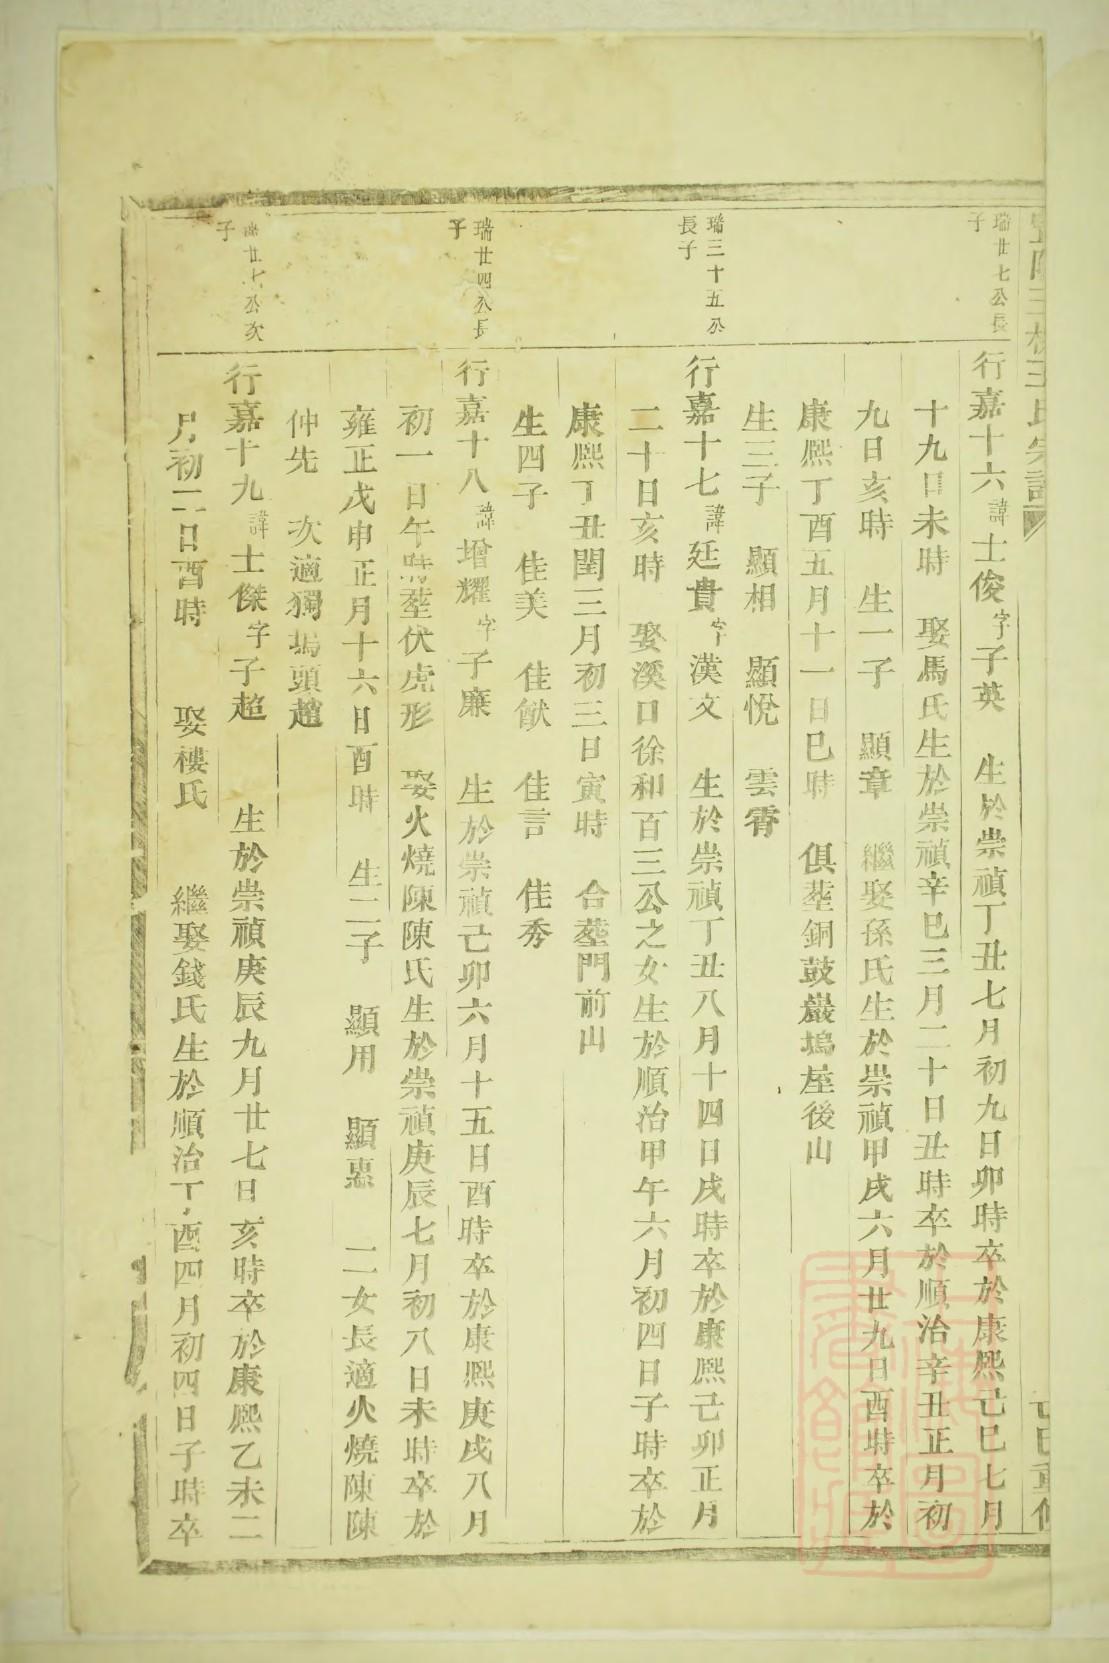 王氏宗譜
瑞廿七公長
子
行嘉十六諱士俊字子英 生於崇禎丁丑七月初九日卯時卒於康熙己巳七月
十九日未時 娶馬氏生於崇禎辛巳三月二十日丑時卒於順治辛丑正月初
九日亥時 生一子 顯章 繼娶孫氏生於崇禎甲戌六月廿九日酉時卒於
康熙丁酉五月十一日巳時 俱塟銅鼓巖塢座後山
生三子 顯相 顯悅 雲霄
瑞三十五公
長子
行嘉十七諱廷貴字漢文 生於崇禎丁丑八月十四日戌時卒於康熙己卯正月
二十日亥時 娶溪口徐和百三公之女生於順治甲午六月初四日子時卒於
康熙丁丑閏三月初三日寅時 合塟門前山
生四子 佳美 佳猷 佳言 佳秀
瑞廿四公長
子
行嘉十八諱增耀字子廉 生於崇禎己卯六月十五日酉時卒於康熙庚戌八月
初一日午時塟伏虎形 娶火燒陳陳氏生於崇禎庚辰七月初八日未時卒於
雍正戊申正月十六日酉時 生二子 顯用 顯惠 二女長適火燒陳陳
仲先 次適獨塢頭趙
廿七公次
子
行嘉十九諱士傑字子超 生於崇禎庚辰九月廿七日亥時卒於康熙乙未二
月初二日酉時 娶樓氏 繼娶錢氏生於順治丁酉四月初四日子時卒